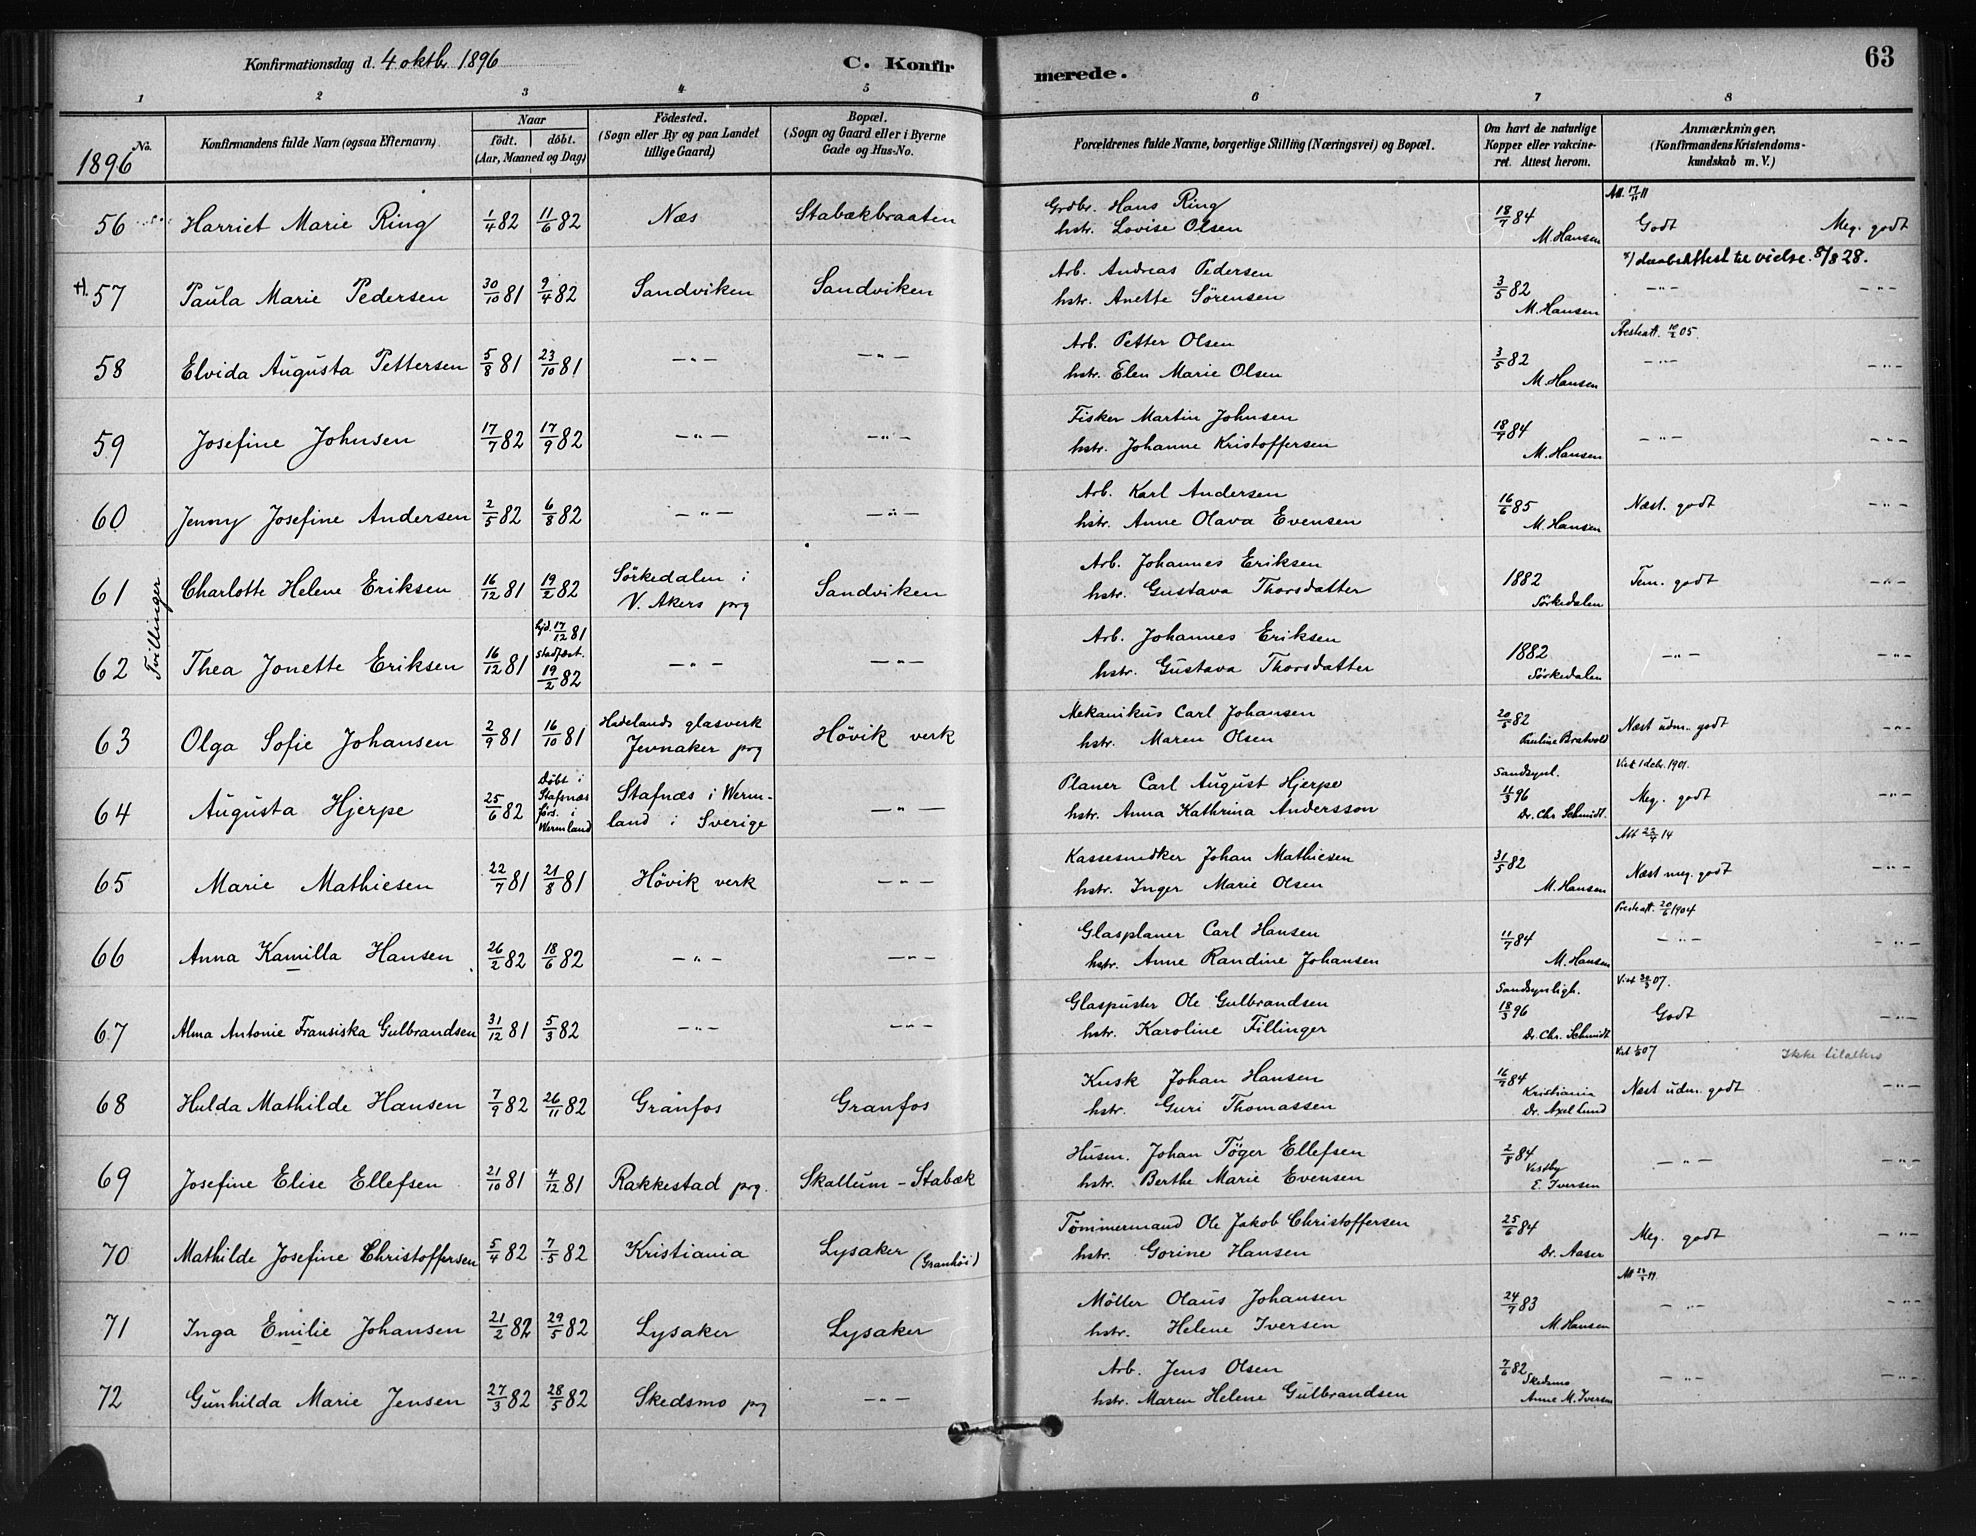 Konfirmationsdag d. 4 oktbr 1896
C. Konfirmerede.
63
1 2 3 4 5 6 7 8
No.
1896
Konfirmandens fulde Navn (ogsaa Efternavn)
Naar
födt. döbt.
(Aar, Maaned og Dag)
Födested.
(Sogn eller By og paa Landet
tillige Gaard)
Bopæl.
(Sogn og Gaard eller i Byerne
Gade og Hus-No.
Forældrenes fulde Navne, borgerlige Stilling (Næringsvei) og Bopæl.
Om havt de naturlige
Kopper eller vakcine-
ret. Attest herom.
Anmærkninger.
(Konfirmandens Kristendoms-
kundskab m. V.)
Att. 17/11 11
56 Harriet Marie Ring 1/4 82 11/6 82 Næs Stabækbraaten Grdbr. Hans Ring 18/7 84 Godt Meg. godt
hstr. Lovise Olsen M. Hansen
*/ daabsattest til vielse. 8/8 28.
57 Paula Marie Pedersen 30/10 81 9/4 82 Sandviken Sandviken Arb. Andreas Pedersen 3/5 82 —"— —"—
hstr. Anette Sörensen M. Hansen
Presteatt. 10/2 05.
58 Elvida Augusta Pettersen 5/8 81 23/10 81 —"— —"— Arb. Petter Olsen 3/5 82 —"— —"—
hstr. Elen Marie Olsen M. Hansen
59 Josefine Johnsen 17/7 82 17/9 82 —"— —"— Fisker Martin Johnsen 18/7 84 —"— —"—
hstr. Johanne Kristoffersen M. Hansen
60 Jenny Josefine Andersen 2/5 82 6/8 82 —"— —"— Arb. Karl Andersen 16/6 85 Næst. godt —"—
hstr. Anne Olava Evensen M. Hansen
Tvillinger
61 Charlotte Helene Eriksen 16/12 81 19/2 82 Sörkedalen i Sandviken Arb. Johannes Eriksen 1882 Tem. godt —"—
V. Akers prg hstr. Gustava Thorsdatter Sörkedalen
62 Thea Jonette Eriksen 16/12 81 hjd. 17/12 81 —"— —"— Arb. Johannes Eriksen 1882 —"— —"—
stadfæst. 19/2 82 hstr. Gustava Thorsdatter Sörkedalen
63 Olga Sofie Johansen 2/9 81 16/10 81 Hadelands glasverk Hövik verk Mekanikus Carl Johansen 20/5 82 Næst udm. godt —"—
Jevnaker prg hstr. Maren Olsen Pauline Bratvold
Viet 1 debr. 1901.
64 Augusta Hjerpe 25/6 82 Döbt i Stafnæs i Werm- —"— Planer Carl August Hjerpe Sandsynl. Meg. godt —"—
Stafsnæs land i Sverige hstr. Anna Kathrina Andersson 11/3 96
förs. i Dr. Chr Schmidt.
Wermland
65 Marie Mathiesen 22/7 81 21/8 81 Hövik verk —"— Kassesnedker Johan Mathiesen 31/5 82 Næst meg. godt —"—
hstr. Inger Marie Olsen M. Hansen
Presteatt. 20/6 1904
66 Anna Kamilla Hansen 26/2 82 18/6 82 —"— —"— Glasplaner Carl Hansen 11/7 84 —"— —"—
hstr. Anne Randine Johansen M. Hansen
67 Alma Antonie Fransiska Gulbrandsen 31/12 81 5/3 82 —"— —"— Glaspuster Ole Gulbrandsen Sandsynligh. Godt —"—
hstr. Karoline Fillinger 18/3 96
Dr. Chr. Schmidt
68 Hulda Mathilde Hansen 7/9 82 26/11 82 Granfos Granfos Kusk Johan Hansen 16/9 84 Næst udm. godt —"—
hstr. Guri Thomassen Kristiania
Dr. Axel Lund
69 Josefine Elise Ellefsen 21/10 81 4/12 81 Rakkestad prg. Skallum - Stabæk Husm. Johan Töger Ellefsen 2/8 84 —"— —"—
hstr. Berthe Marie Evensen Vestby
E. Iversen
70 Mathilde Josefine Christoffersen 5/4 82 7/5 82 Kristiania Lysaker (Granhöi) Tömmermand Ole Jakob Christoffersen 25/6 84 Meg. godt —"—
hstr. Gorine Hansen Dr. Aaser
71 Inga Emilie Johansen 21/2 82 29/5 82 Lysaker Lysaker Möller Olaus Johansen 24/7 83 —"— —"—
hstr. Helene Iversen M. Hansen
72 Gunhilda Marie Jensen 27/3 82 28/5 82 Skedsmo prg —"— Arb. Jens Olsen 7/6 82 —"— —"—
hstr. Maren Helene Gulbrandsen Skedsmo
Anne M. Iversen